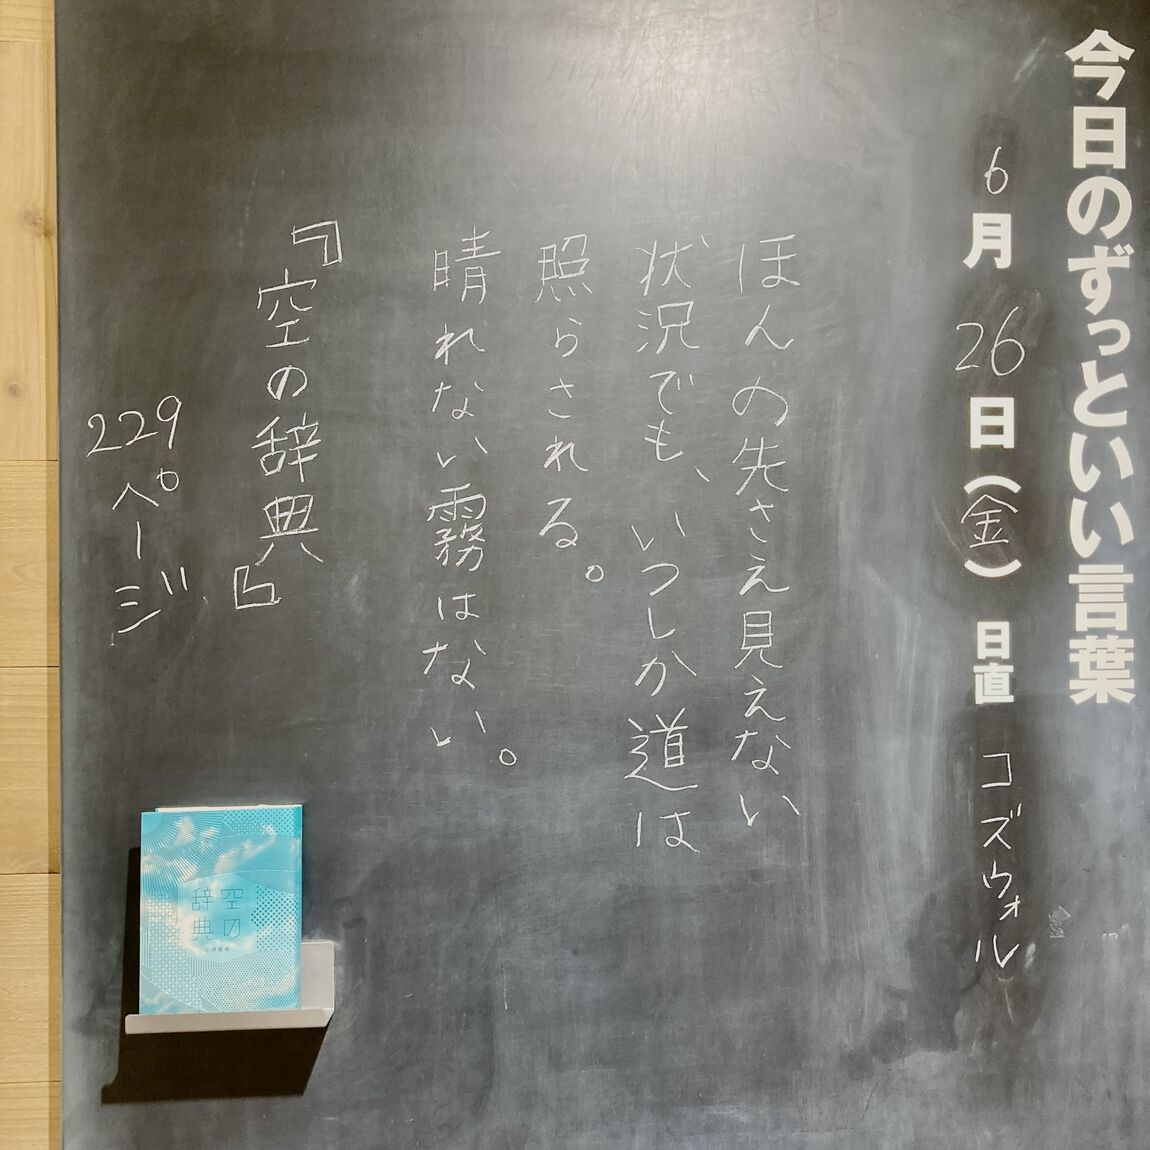 今日のずっといい言葉
6月26日(金) 日直 コズウォル
ほんの先さえ見えない
状況でも、いつしか道は
照らされる。
晴れない霧はない。
『空の辞典』
229ページ
空の
辞典